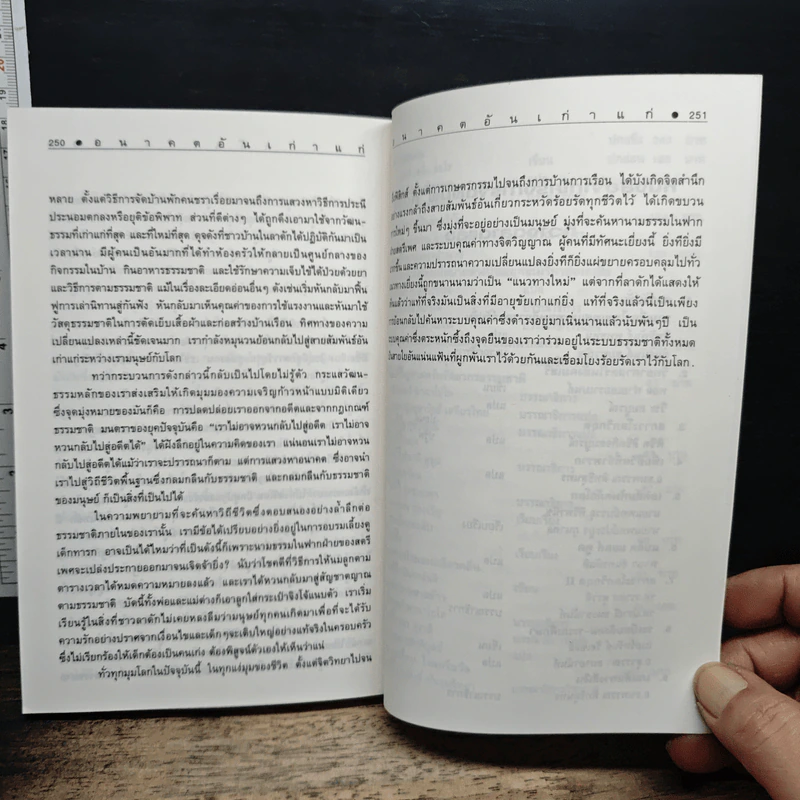 250 ● อ น า ค ต อั น เ ก่ า แ ก่
หลาย ตั้งแต่วิธีการจัดบ้านพักคนชราเรื่อยมาจนถึงการแสวงหาวิธีการประนี
ประนอมตกลงหรือยุติข้อพิพาท ส่วนที่ดีต่างๆ ได้ถูกดึงเอามาใช้จากวัฒน-
ธรรมที่เก่าแก่ที่สุด และที่ใหม่ที่สุด ดุจดังที่ชาวบ้านในลาดักได้ปฏิบัติกันมาเป็น
เวลานาน มีผู้คนเป็นอันมากที่ได้ทำห้องครัวให้กลายเป็นศูนย์กลางของ
กิจกรรมในบ้าน กินอาหารธรรมชาติ และใช้รักษาความเจ็บไข้ได้ป่วยด้วยยา
และวิธีการตามธรรมชาติ แม้ในเรื่องละเอียดอ่อนอื่นๆ ดังเช่นเริ่มหันกลับมาฟื้น
ฟูการเล่านิทานสู่กันฟัง หันกลับมาเห็นคุณค่าของการใช้แรงงานและหันมาใช้
วัสดุธรรมชาติในการตัดเย็บเสื้อผ้าและก่อสร้างบ้านเรือน ทิศทางของความ
เปลี่ยนแปลงเหล่านี้ชัดเจนมาก เรากำลังหมุนวนย้อนกลับไปสู่สายสัมพันธ์อัน
เก่าแก่ระหว่างเรามนุษย์กับโลก
ทว่ากระบวนการดังกล่าวนี้กลับเป็นไปโดยไม่รู้ตัว กระแสวัฒน-
ธรรมหลักของเราส่งเสริมให้เกิดมุมมองความเจริญก้าวหน้าแบบมิติเดียว
ซึ่งจุดมุ่งหมายของมันก็คือ การปลดปล่อยเราออกจากอดีตและจากกฎเกณฑ์
ธรรมชาติ มนตราของยุคปัจจุบันคือ “เราไม่อาจหวนกลับไปสู่อดีต เราไม่อาจ
หวนกลับไปสู่อดีตได้” ได้ฝังลึกอยู่ในความคิดของเรา แน่นอนเราไม่อาจหวน
กลับไปสู่อดีตได้แม้ว่าเราจะปรารถนาก็ตาม แต่การแสวงหาอนาคต ซึ่งอาจนำ
เราไปสู่วิถีชีวิตพื้นฐานซึ่งกลมกลืนกับธรรมชาติ และกลมกลืนกับธรรมชาติ
ของมนุษย์ ก็เป็นสิ่งที่เป็นไปได้
ในความพยายามที่จะค้นหาวิถีชีวิตซึ่งตอบสนองอย่างล้ำลึกต่อ
ธรรมชาติภายในของเรานั้น เรามีข้อได้เปรียบอย่างยิ่งอยู่ในการอบรมเลี้ยงดู
เด็กทารก อาจเป็นได้ไหมว่าที่เป็นดังนี้ก็เพราะนามธรรมในฟากฝ่ายของสตรี
เพศจะเปล่งประกายออกมาจนเจิดจ้ายิ่ง? นับว่าโชคดีที่วิธีการให้นมลูกตาม
ตารางเวลาได้หมดความหมายลงแล้ว และเราได้หวนกลับมาสู่สัญชาตญาณ
ตามธรรมชาติ บัดนี้ทั้งพ่อและแม่ต่างก็เอาลูกใส่กระเป๋าจิงโจ้แนบตัว เราเริ่ม
เรียนรู้ในสิ่งที่ชาวลาดักไม่เคยหลงลืมว่ามนุษย์ทุกคนเกิดมาเพื่อที่จะได้รับ
ความรักอย่างปราศจากเงื่อนไขและเด็กๆจะเติบใหญ่อย่างแท้จริงในครอบครัว
ซึ่งไม่เรียกร้องให้เด็กต้องเป็นคนเก่ง ต้องพิสูจน์ตัวเองให้เห็นว่าแน่
ทั่วทุกมุมโลกในปัจจุบันนี้ ในทุกแง่มุมของชีวิต ตั้งแต่จิตวิทยาไปจน
น า ค ต อั น เ ก่ า แ ก่ ● 251
ฟิสิกส์ ตั้งแต่การเกษตรกรรมไปจนถึงการบ้านการเรือน ได้บังเกิดจิตสำนึก
อย่างแรงกล้าถึงสายสัมพันธ์อันเกี่ยวกระหวัดร้อยรัดทุกชีวิตไว้ ได้เกิดขบวน
การใหม่ๆ ขึ้นมา ซึ่งมุ่งที่จะอยู่อย่างเป็นมนุษย์ มุ่งที่จะค้นหานามธรรมในฟาก
ฝ่ายสตรีเพศ และระบบคุณค่าทางจิตวิญญาณ ผู้คนที่มีทัศนะเยี่ยงนี้ ยิ่งทียิ่งมี
มากขึ้นและความปรารถนาความเปลี่ยนแปลงยิ่งทีก็ยิ่งแผ่ขยายครอบคลุมไปทั่ว
แนวทางเยี่ยงนี้ถูกขนานนามว่าเป็น “แนวทางใหม่” แต่จากที่ลาดักได้แสดงให้
เห็นแล้วว่าแท้ที่จริงมันเป็นสิ่งที่มีอายุขัยเก่าแก่ยิ่ง แท้ที่จริงแล้วนี่เป็นเพียง
การย้อนกลับไปค้นหาระบบคุณค่าซึ่งดำรงอยู่มาเนิ่นนานแล้วนับพันๆปี เป็น
ระบบคุณค่าซึ่งตระหนักซึ้งถึงจุดยืนของเราว่าร่วมอยู่ในระบบธรรมชาติทั้งหมด
เป็นสายใยอันแน่นแฟ้นที่ผูกพันเราไว้ด้วยกันและเชื่อมโยงร้อยรัดเราไว้กับโลก.